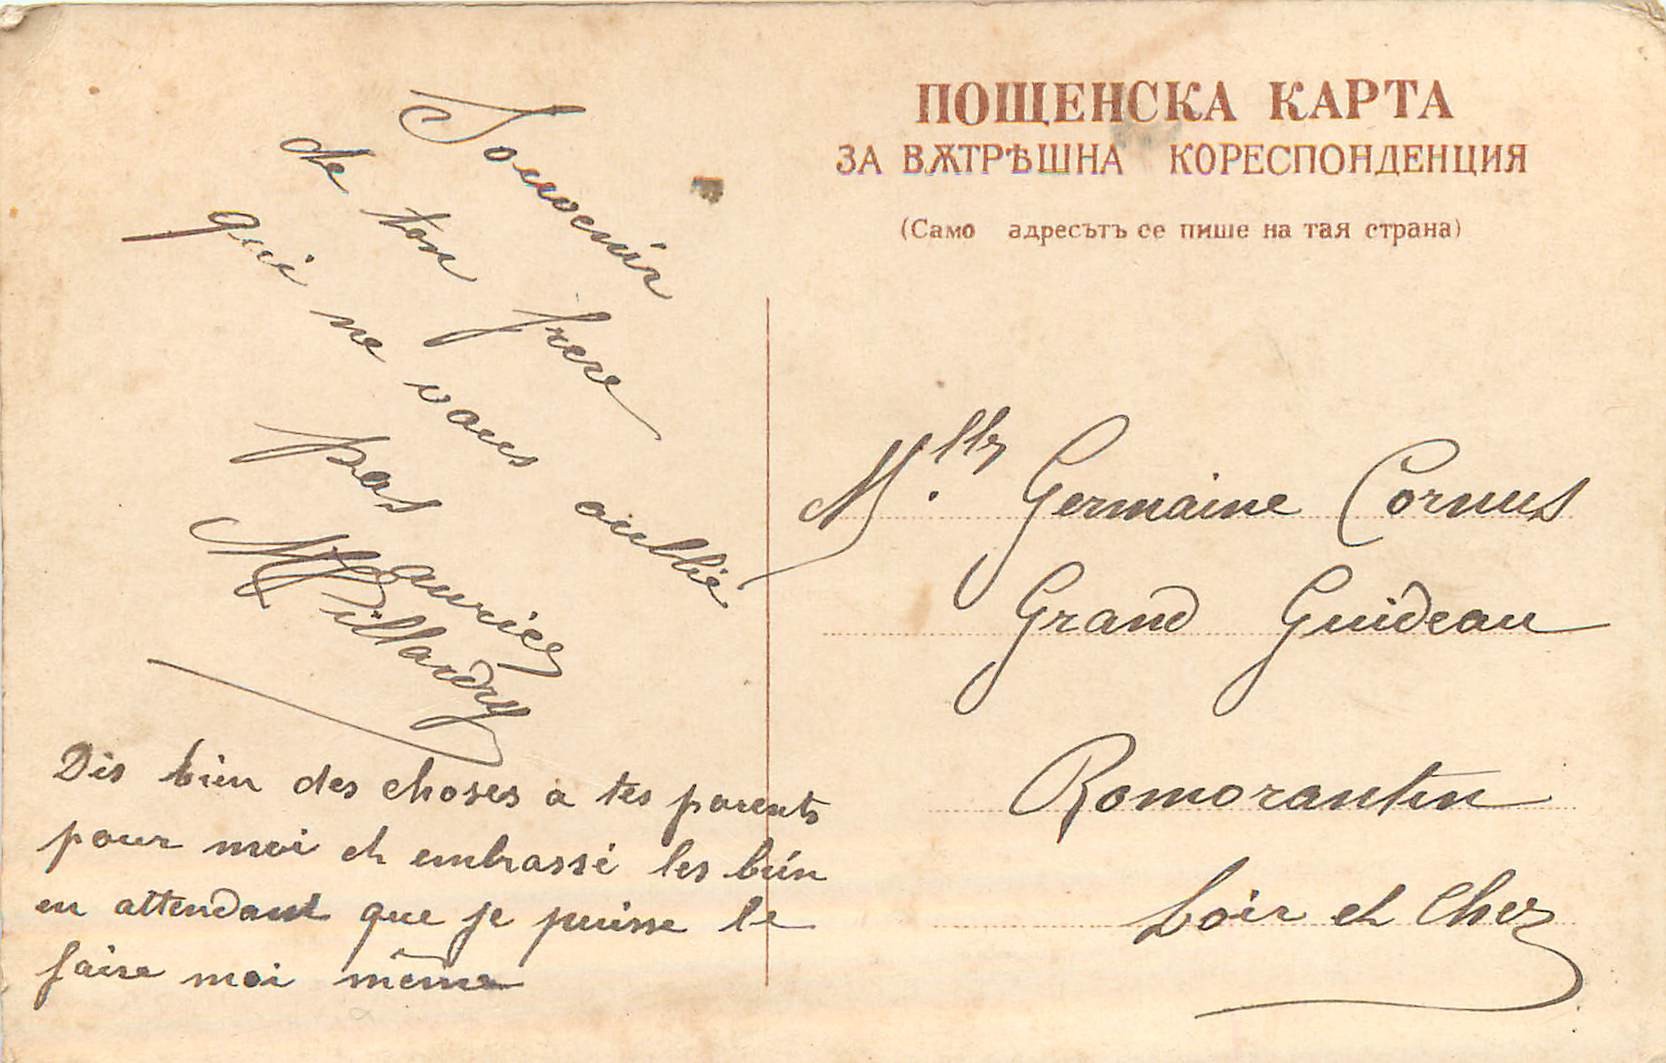 ПОЩЕНСКА КАРТА
ЗА ВѪТРѢШНА КОРЕСПОНДЕНЦИЯ
(Само адресътъ се пише на тая страна)
Souvenir
de ton frere
qui ne vous oublie
pas
Maurice
Dis bien des choses a tes parents
pour moi et embrasse les bien
en attendant que je puisse le
faire moi même
Melle Germaine Cornus
Grand Guideau
Romorantin
Loir et Cher